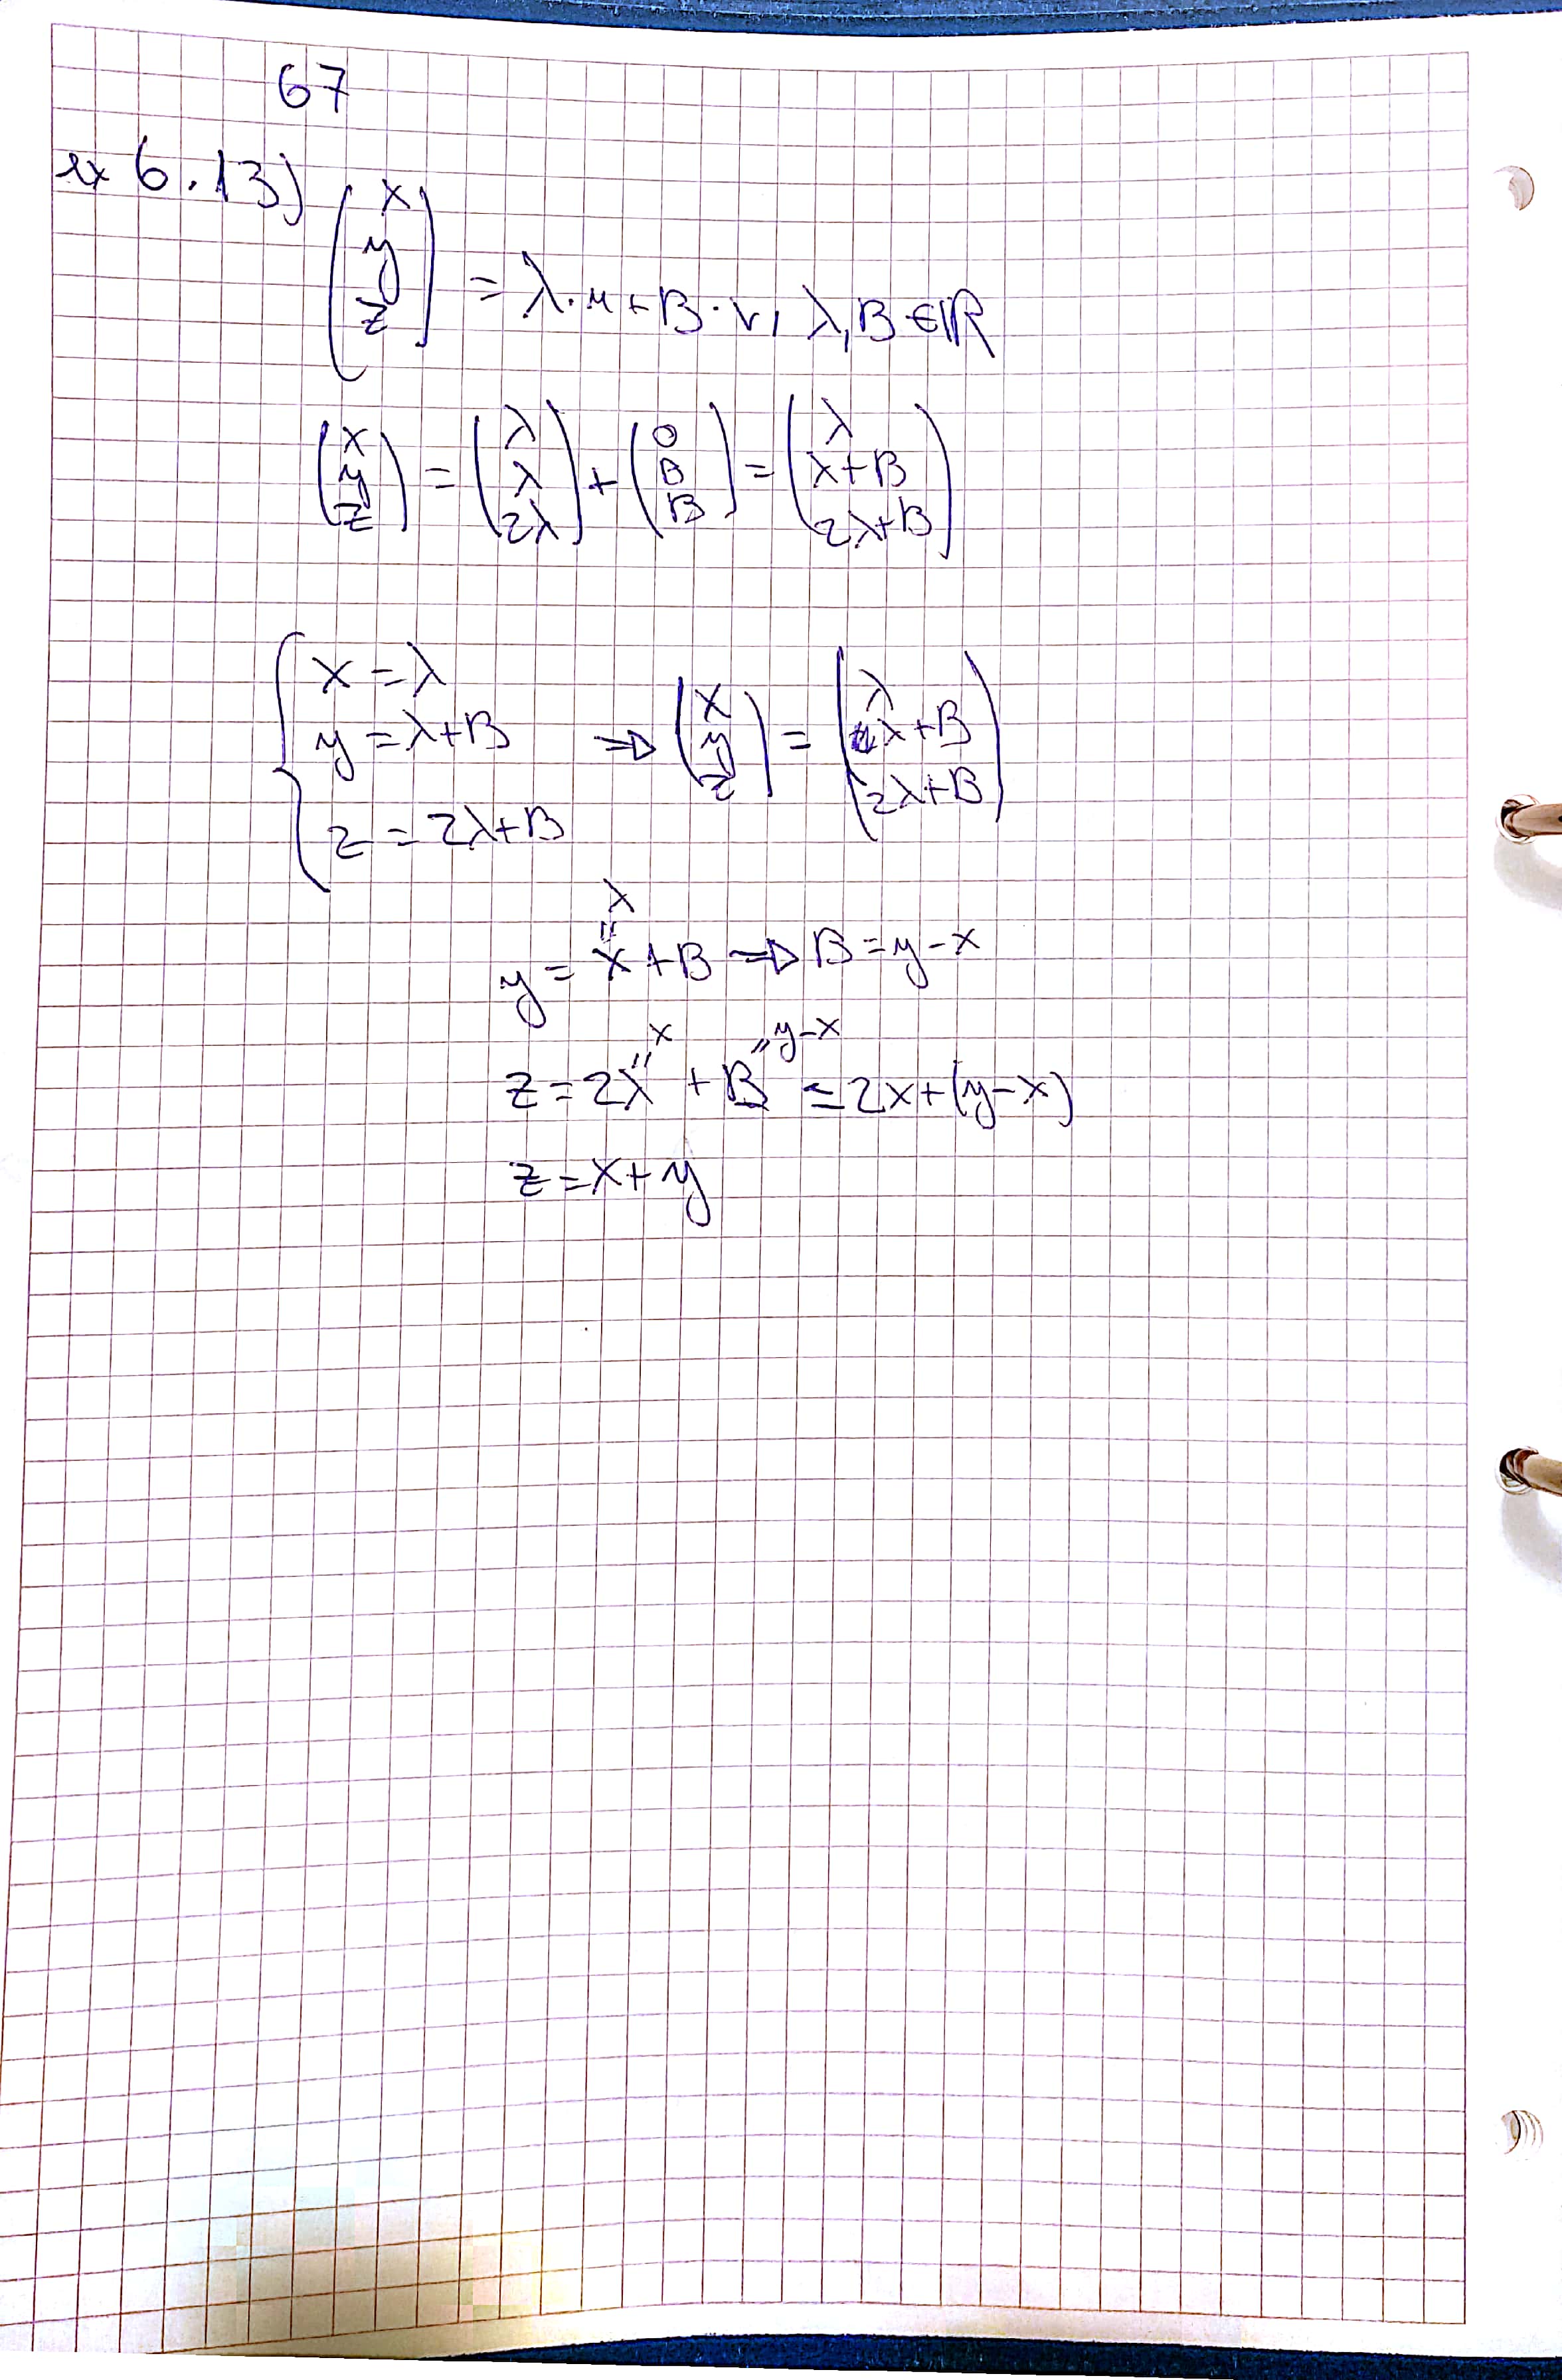 67
ex 6.13)
(x y z) = λ·u + B·v, λ,B ∈ ℝ
(x y z) = (λ λ 2λ) + (0 B B) = (λ λ+B 2λ+B)
x = λ
y = λ+B ⇒ (x y z) = (λ λ+B 2λ+B)
z = 2λ+B
λ
"
y = x + B ⇒ B = y-x
x y-x
" "
z = 2λ + B = 2x+(y-x)
z = x+y